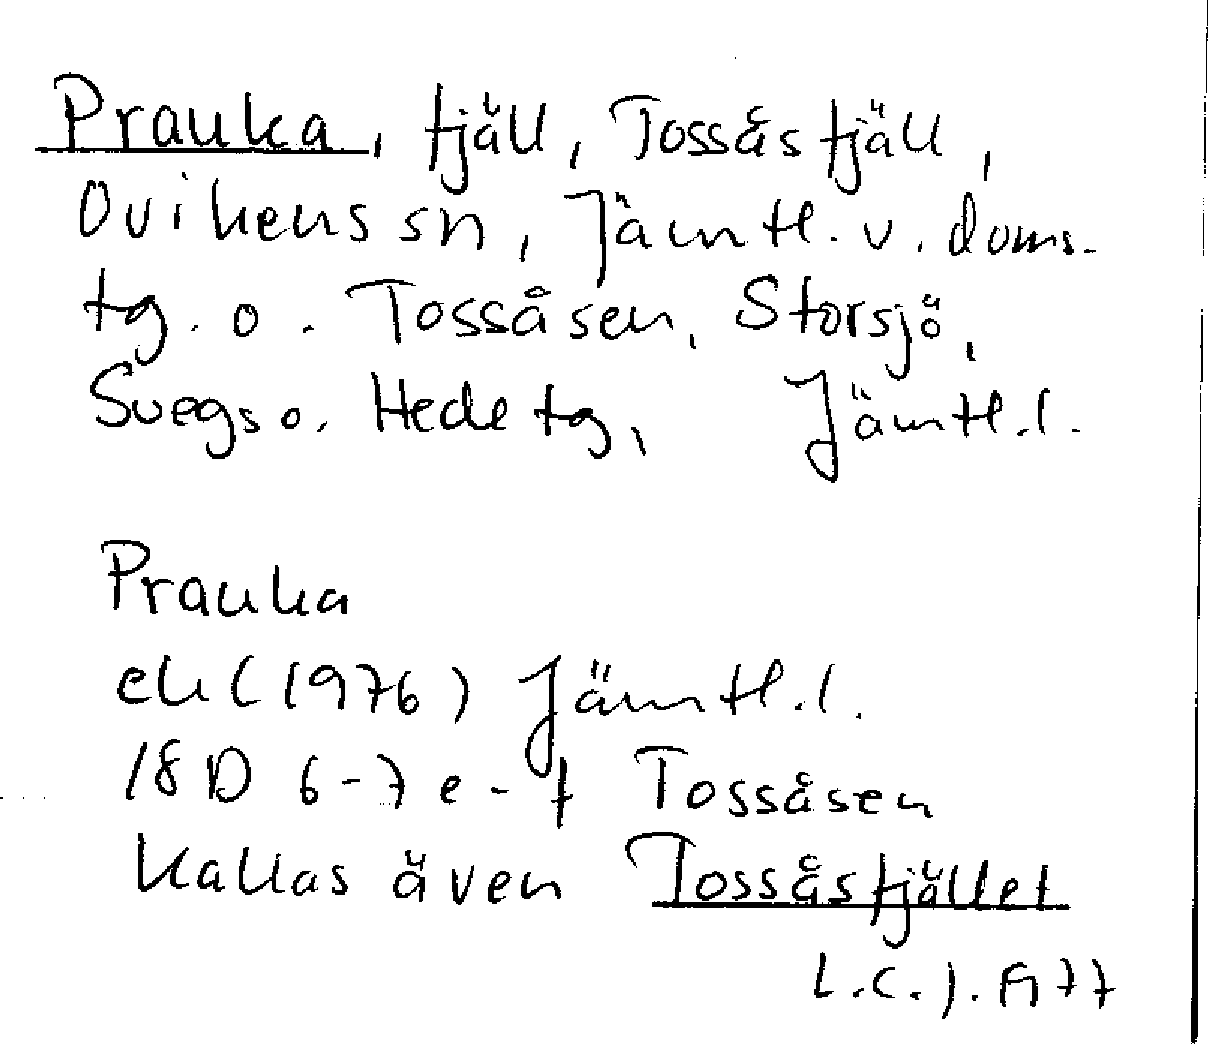 Prauka, fjäll, Tossåsfjäll,
Ovikens sn, Jämtl. v. doms.
tg. o. Tossåsen, Storsjö,
Svegs o. Hede tg, Jämtl.l.
Prauka
ek (1976) Jämtl.l.
18D 6-7 e-f Tossåsen
Kallas även Tossåsfjället
L.C.J. 77